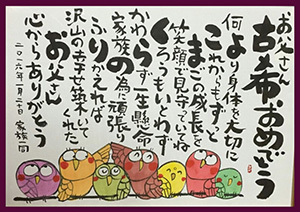 お父さん
古希おめでとう
何より身体を大切に
これからもずっと
まごの成長を
笑顔で見守っていてね
くろうもいとわず
かわらず一生懸命
家族の為に頑張り
ふりかえれば
沢山の幸せ築いてくれた
お父さん
心からありがとう
二〇一六年一月二十日 家族一同